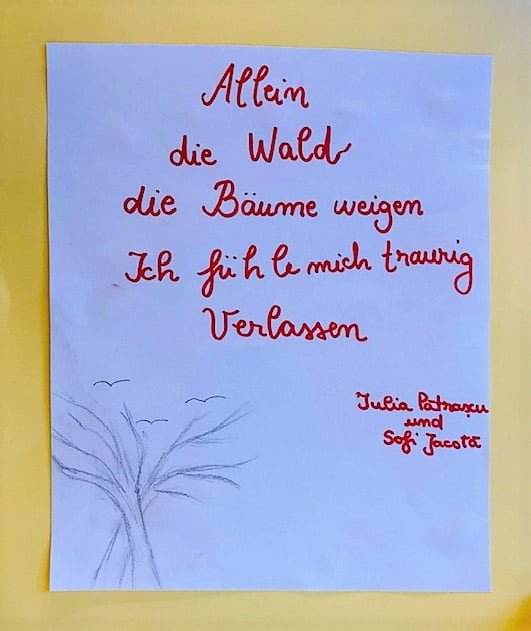 Allein
die Wald
die Bäume weigen
Ich fühle mich traurig
Verlassen
Iulia Pătrașcu
und
Sofi Jacotă